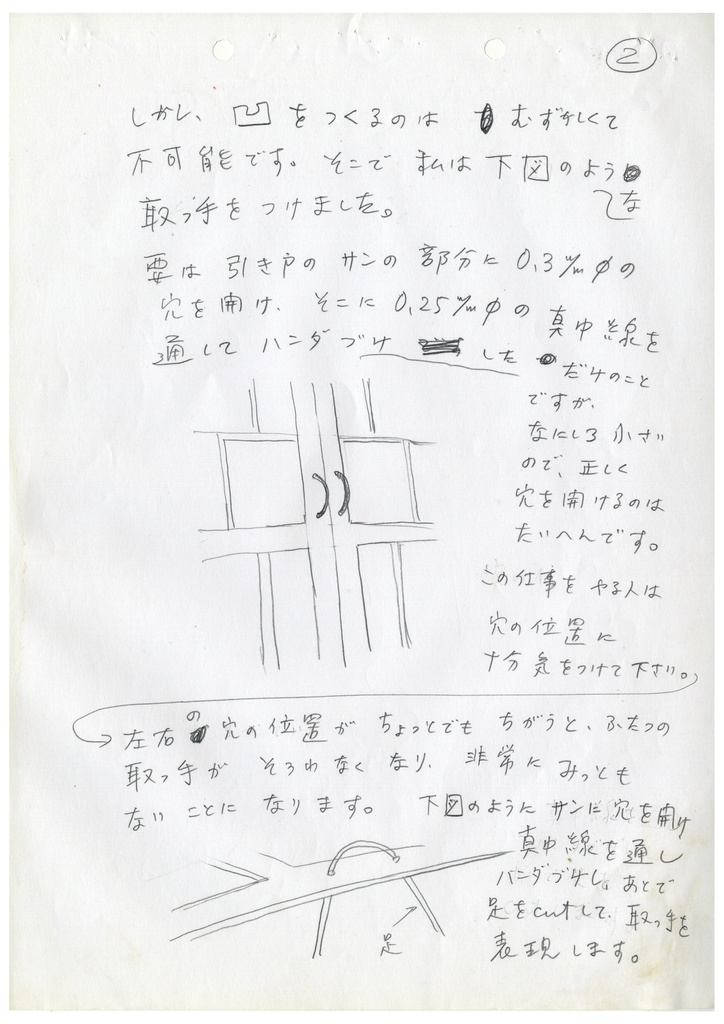 ②
しかし、凹をつくるのは むずかしくて
不可能です。そこで 私は 下図のような
取っ手をつけました。
要は 引き戸の サンの 部分に 0.3m/mφの
穴を開け、そこに 0.25m/mφの 真中線を
通して ハンダづけ した だけのこと
ですが、
なにしろ 小さい
ので、正しく
穴を開けるのは
たいへんです。
この仕事を やる人は
穴の位置に
十分 気をつけて下さい。
左右の穴の位置が ちょっとでも ちがうと、ふたつの
取っ手が そろわなくなり、非常に みっとも
ないことに なります。 下図のように サンに穴を開け
真中線を通し
ハンダづけし、あとで
足をcutして、取っ手を
表現します。
足